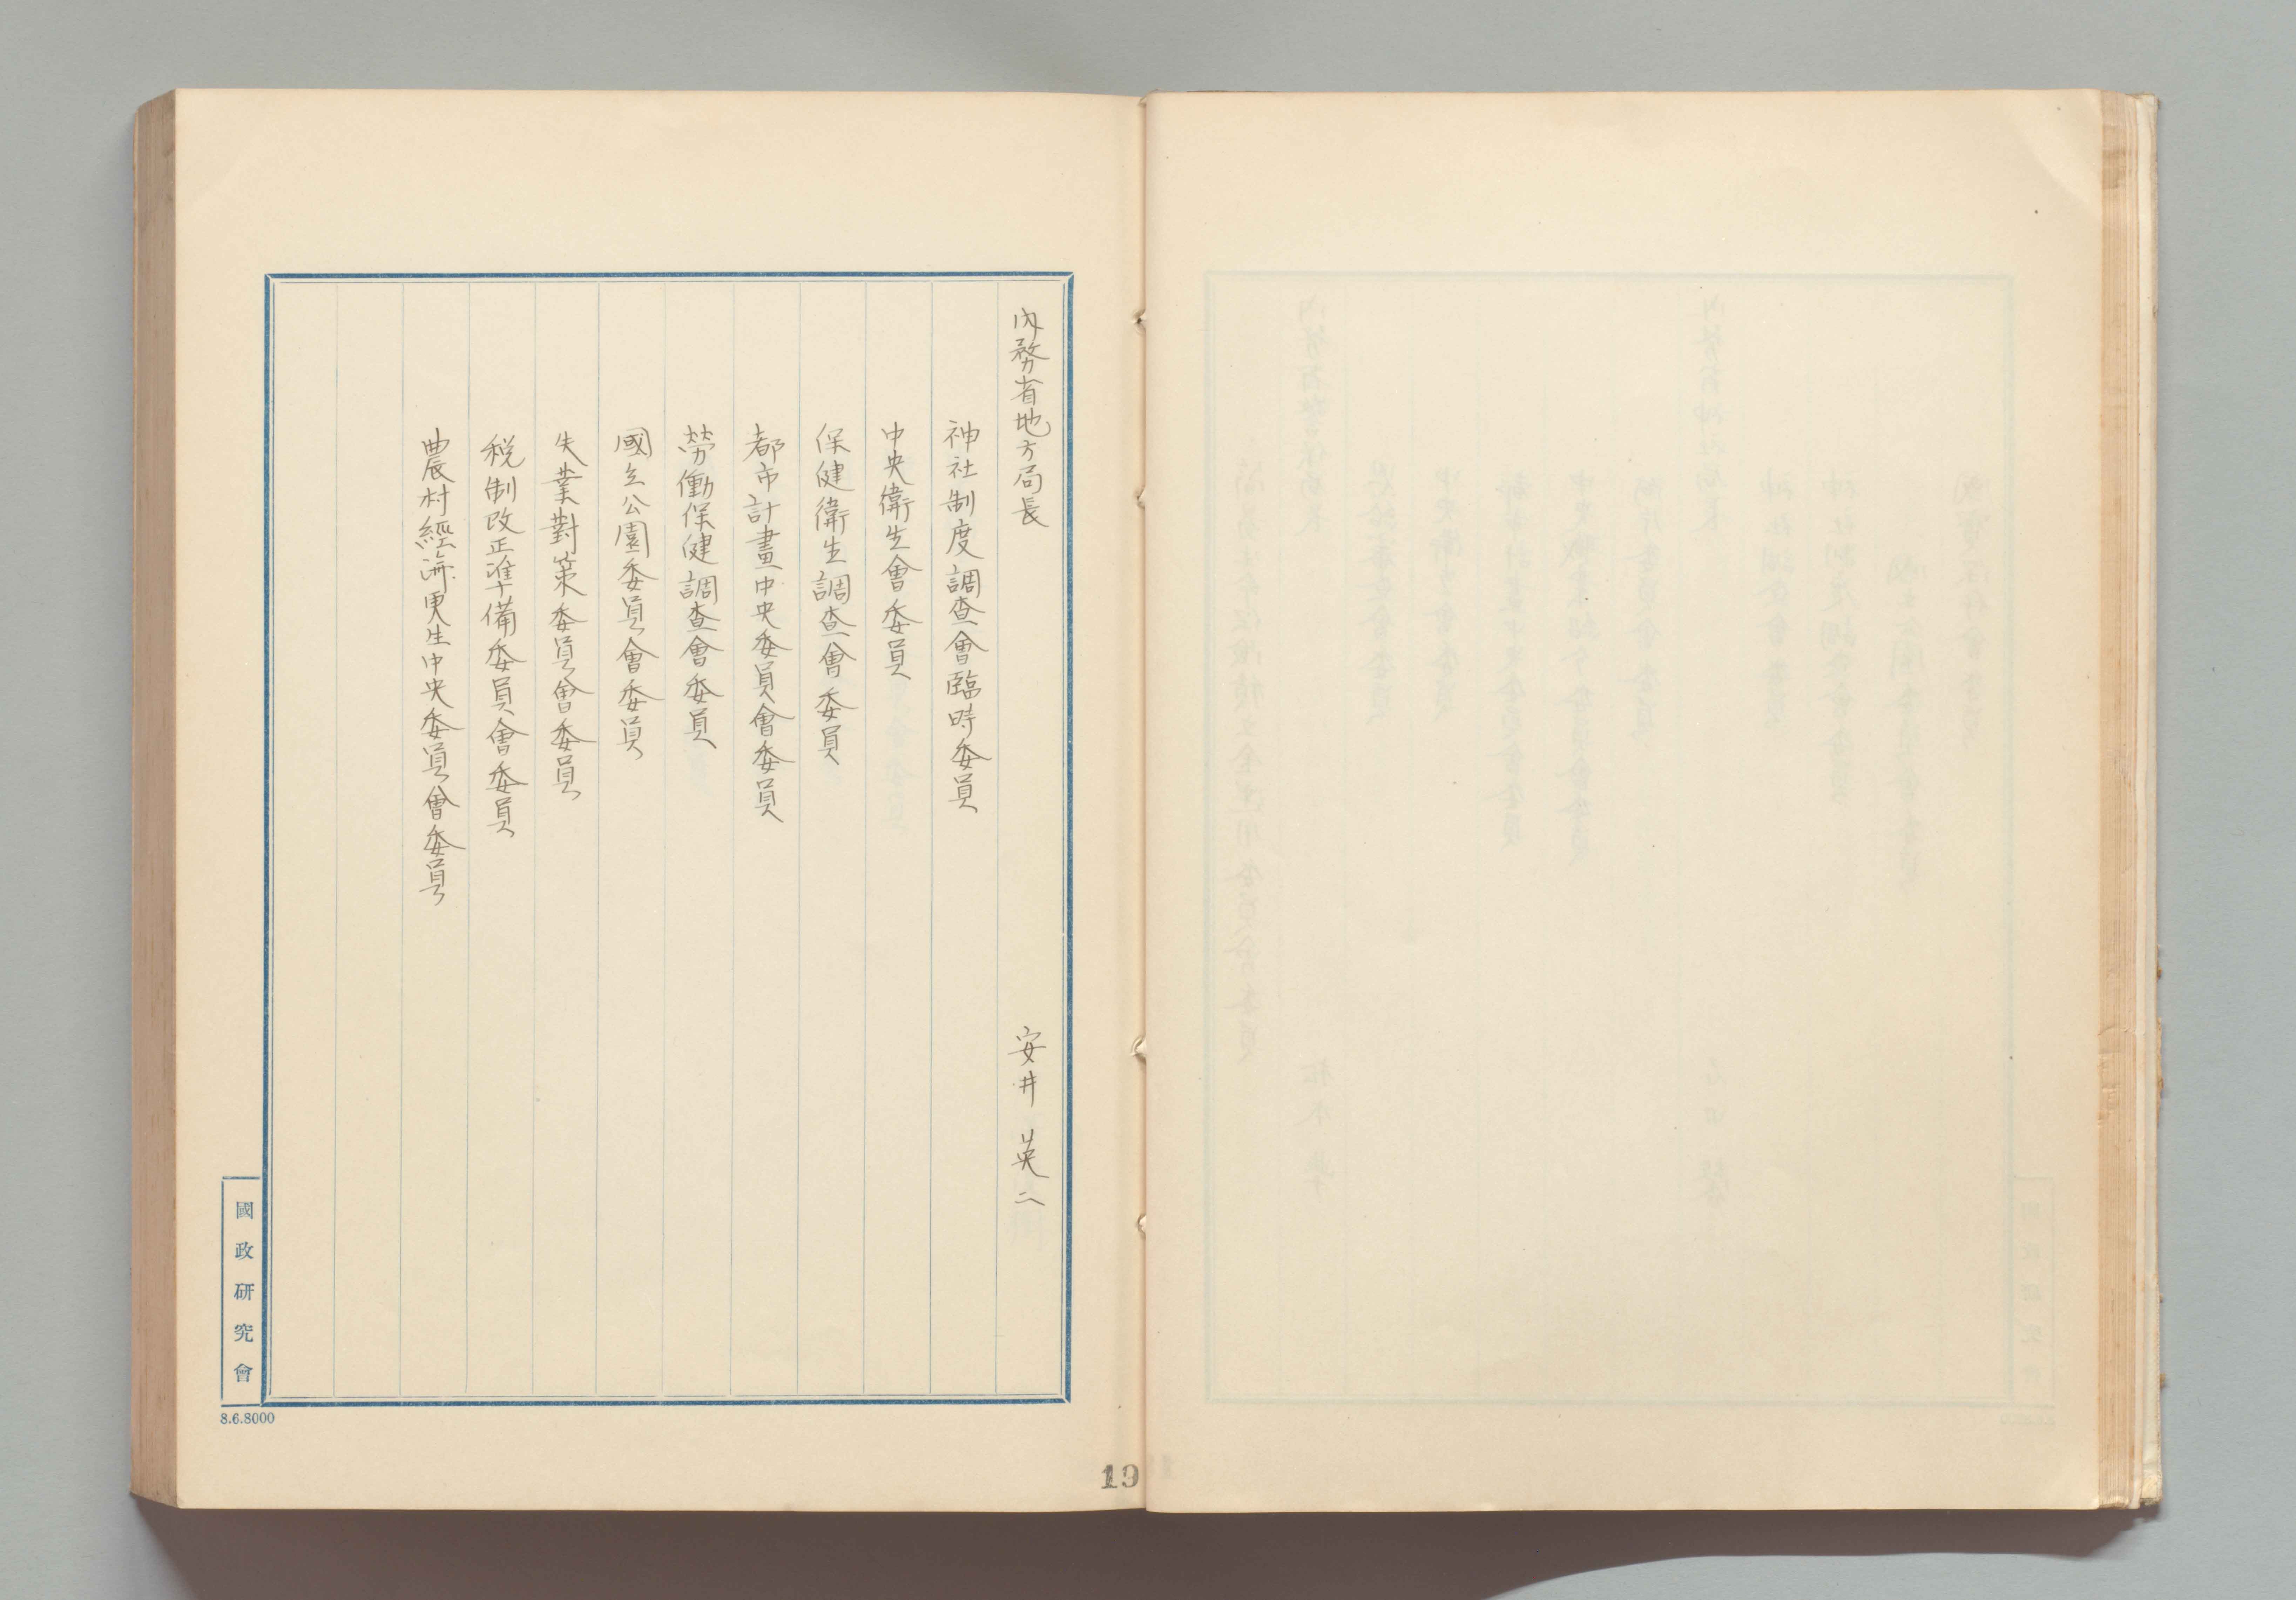 內務省地方局長 安井英二
神社制度調査會臨時委員
中央衛生會委員
保健衛生調査會委員
都市計畫中央委員會委員
勞働保健調査會委員
國立公園委員會委員
失業對策委員會委員
税制改正準備委員會委員
農村經濟更生中央委員會委員
國政研究會
8.6.8000
19